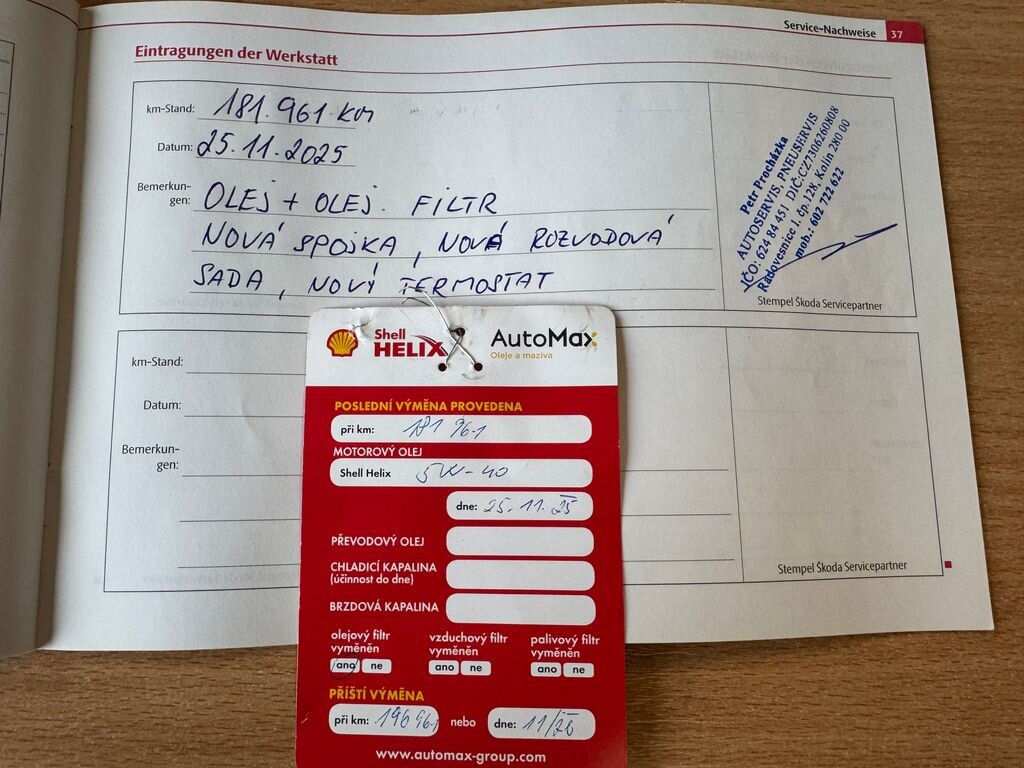 Service-Nachweise 37
Eintragungen der Werkstatt
km-Stand: 181.961 km
Datum: 25.11.2025
Bemerkun-
gen: OLEJ + OLEJ. FILTR
NOVÁ SPOJKA, NOVÁ ROZVODOVÁ
SADA, NOVÝ TERMOSTAT
Petr Procházka
AUTOSERVIS, PNEUSERVIS
IČO: 624 84 451 DIČ:CZ7306260808
Radovesnice I. čp. 128, Kolín 280 00
mob.: 602 722 622
Stempel Škoda Servicepartner
km-Stand:
Datum:
Bemerkun-
gen:
Stempel Škoda Servicepartner
Shell
HELIX
AutoMax
Oleje a maziva
POSLEDNÍ VÝMĚNA PROVEDENA
při km: 181 961
MOTOROVÝ OLEJ
Shell Helix 5W-40
dne: 25.11.25
PŘEVODOVÝ OLEJ
CHLADICÍ KAPALINA
(účinnost do dne)
BRZDOVÁ KAPALINA
olejový filtr vzduchový filtr palivový filtr
vyměněn vyměněn vyměněn
ano ne ano ne ano ne
PŘÍŠTÍ VÝMĚNA
při km: 196 961 nebo dne: 11/26
www.automax-group.com